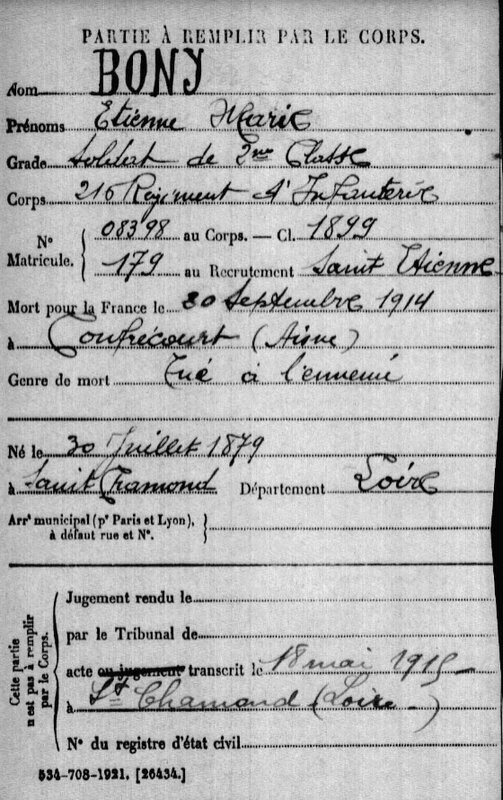 PARTIE À REMPLIR PAR LE CORPS.
Nom BONY
Prénoms Etienne Marie
Grade Soldat de 2me Classe
Corps 216 Régiment d'Infanterie
N° Matricule. { 08398 au Corps. — Cl. 1899
179 au Recrutement Saint Etienne
Mort pour la France le 30 Septembre 1914
à Confrécourt (Aisne)
Genre de mort Tué à l'ennemi
Né le 30 Juillet 1879
à Saint Chamond Département Loire
Arrt municipal (pr Paris et Lyon), }
à défaut rue et N°.
Cette partie n'est pas à remplir par le Corps.
Jugement rendu le
par le Tribunal de
acte ou jugement transcrit le 18 mai 1915
à St Chamond (Loire)
N° du registre d'état civil
534-708-1921. [26434.]